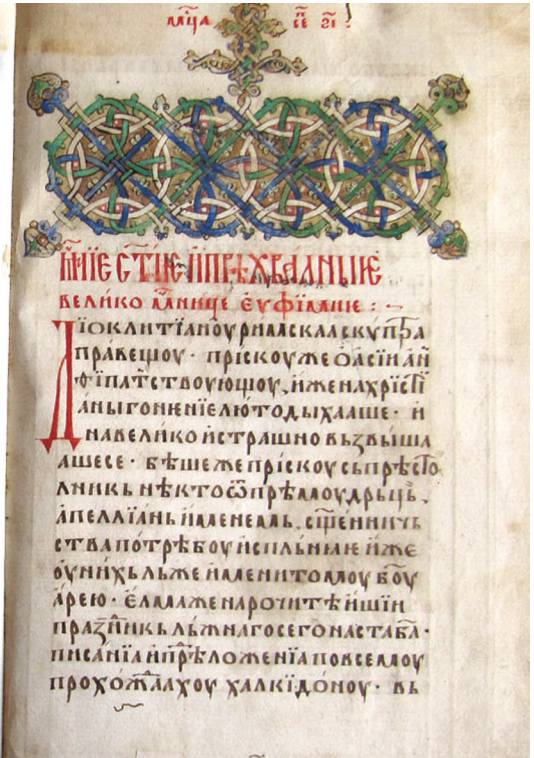 мⷭ҇ца сеⷫ҇ ѕ҃і :
мⷱ҇нїе ст҃ыѥ и прѣхвалныѥ
велико мⷱ҇нице еѵфимїіе : ~
Дїоклитїаноу римскаа скѵптра
правещоу · прїскоу же ѳасїи ан
ѳїпатⷭ҇твоующоу, и же на хрїстї
аны гоненїе лютоⷭ҇ дыхааше · и
на велико и страшно вьзвыша
аше се · бѣше же прїскоу сьпрѣсто
лникь нѣкто ѿ прѣмоудрыць,
апеллїань именемь, сщ҃енничь
ства потрѣбоу испльнѥе и же
оу нихь льжеименитомоу б҃оу
арею · елма же нарочитѣйшїи
празⷣникь льжнаго сего наста ба ·
писанїа и прѣложенїа по всемоу
прохожⷣаахоу халкїдоноу · вь